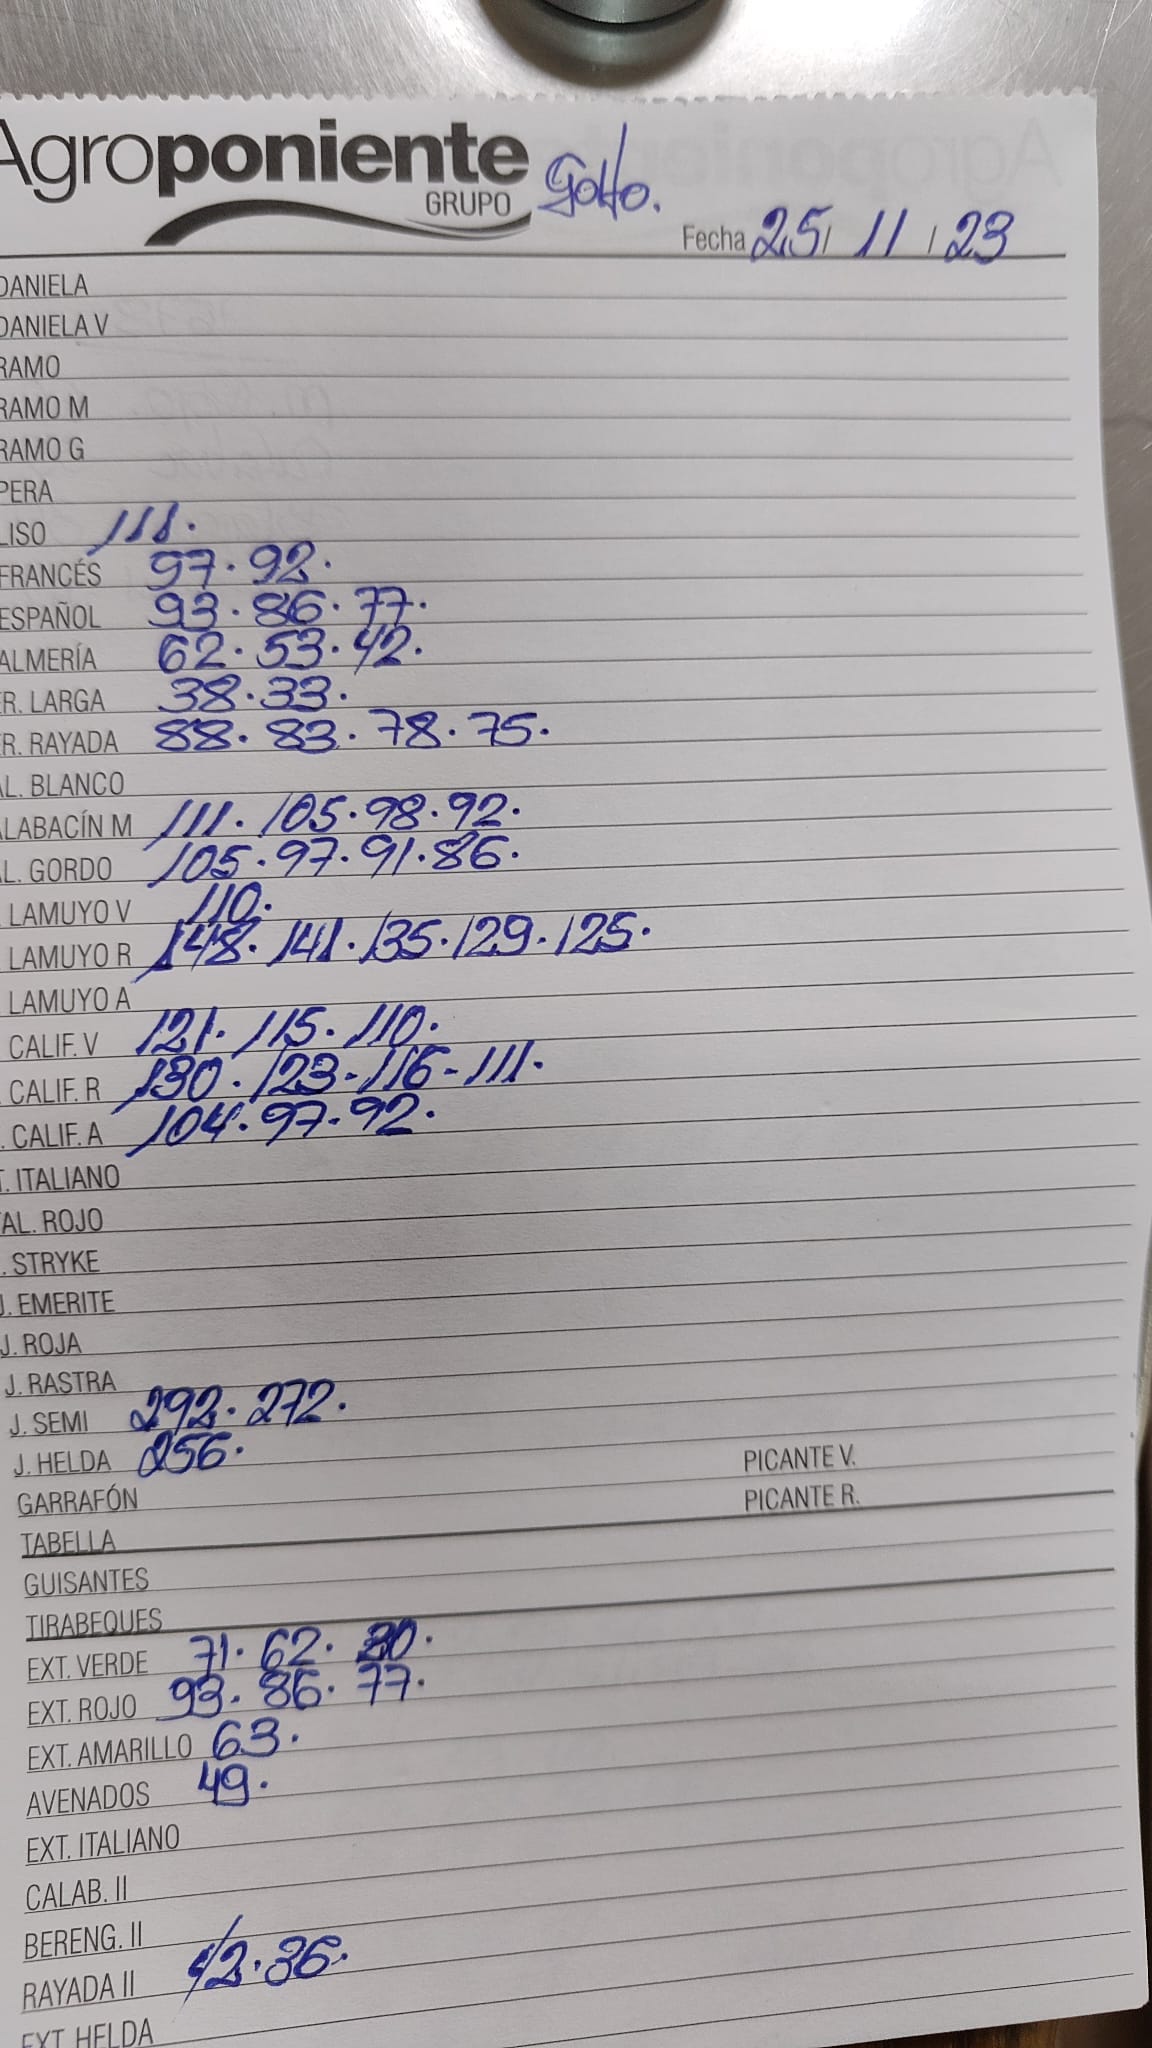 Agroponiente
GRUPO
Fecha 25/ 11 / 23
DANIELA
DANIELA V
RAMO
RAMO M
RAMO G
PERA
LISO 111.
FRANCÉS 97. 92.
ESPAÑOL 93. 86. 77.
ALMERÍA 62. 53. 42.
ER. LARGA 38. 33.
ER. RAYADA 88. 83. 78. 75.
AL. BLANCO
ALABACÍN M 111. 105. 98. 92.
AL. GORDO 105. 97. 91. 86.
. LAMUYO V 110.
. LAMUYO R 148. 141. 135. 129. 125.
LAMUYO A
CALIF. V 121. 115. 110.
. CALIF. R 130. 123-116-111.
. CALIF. A 104. 97. 92.
T. ITALIANO
TAL. ROJO
. STRYKE
J. EMERITE
J. ROJA
J. RASTRA
J. SEMI 292. 272.
J. HELDA 256.
PICANTE V.
GARRAFÓN
PICANTE R.
TABELLA
GUISANTES
TIRABEQUES
EXT. VERDE 71. 62.
EXT. ROJO 93. 86. 77.
EXT. AMARILLO 63.
AVENADOS 49.
EXT. ITALIANO
CALAB. II
BERENG. II
RAYADA II 42. 36.
EXT. HELDA